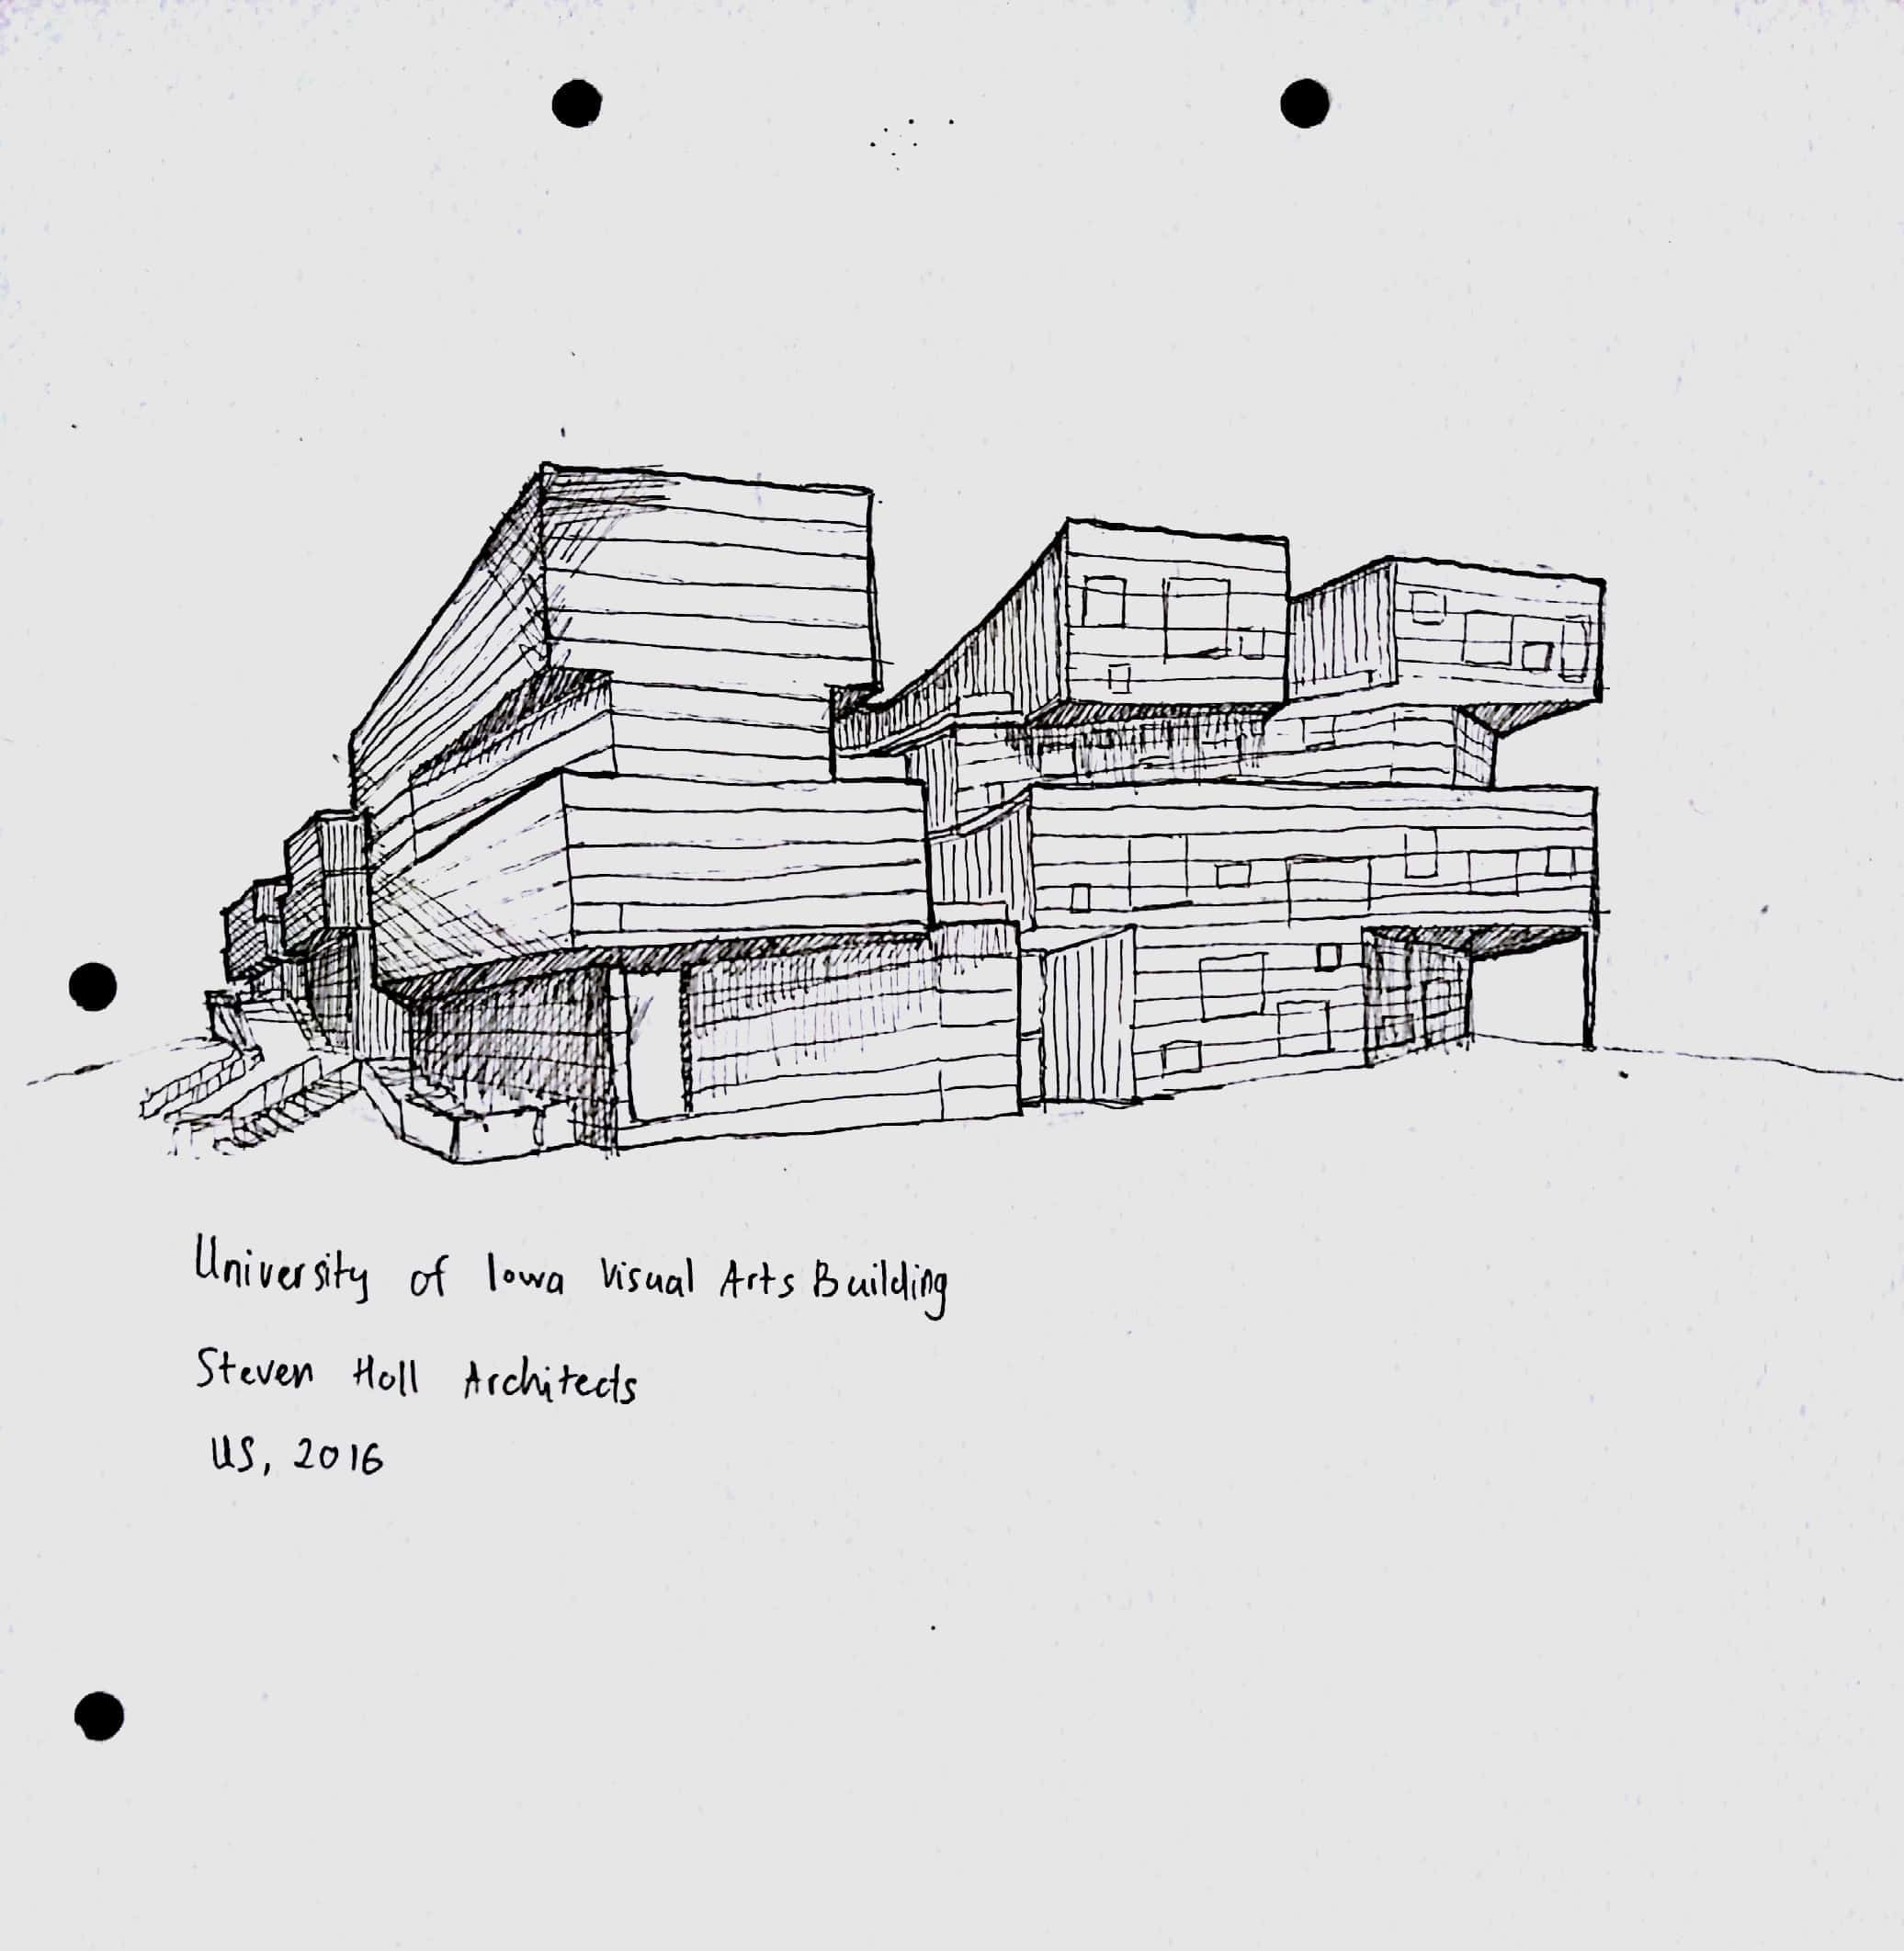 University of Iowa Visual Arts Building
Steven Holl Architects
US, 2016